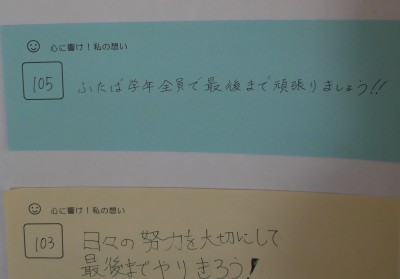 心に響け！私の想い
105
ふたば学年全員で最後まで頑張りましょう!!
心に響け！私の想い
103
日々の努力を大切にして
最後までやりきろう!